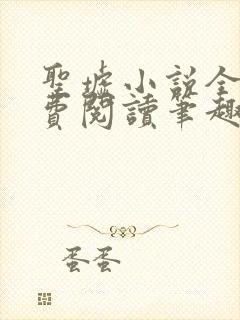 聖墟小說全
費閱讀筆趣
蛋蛋